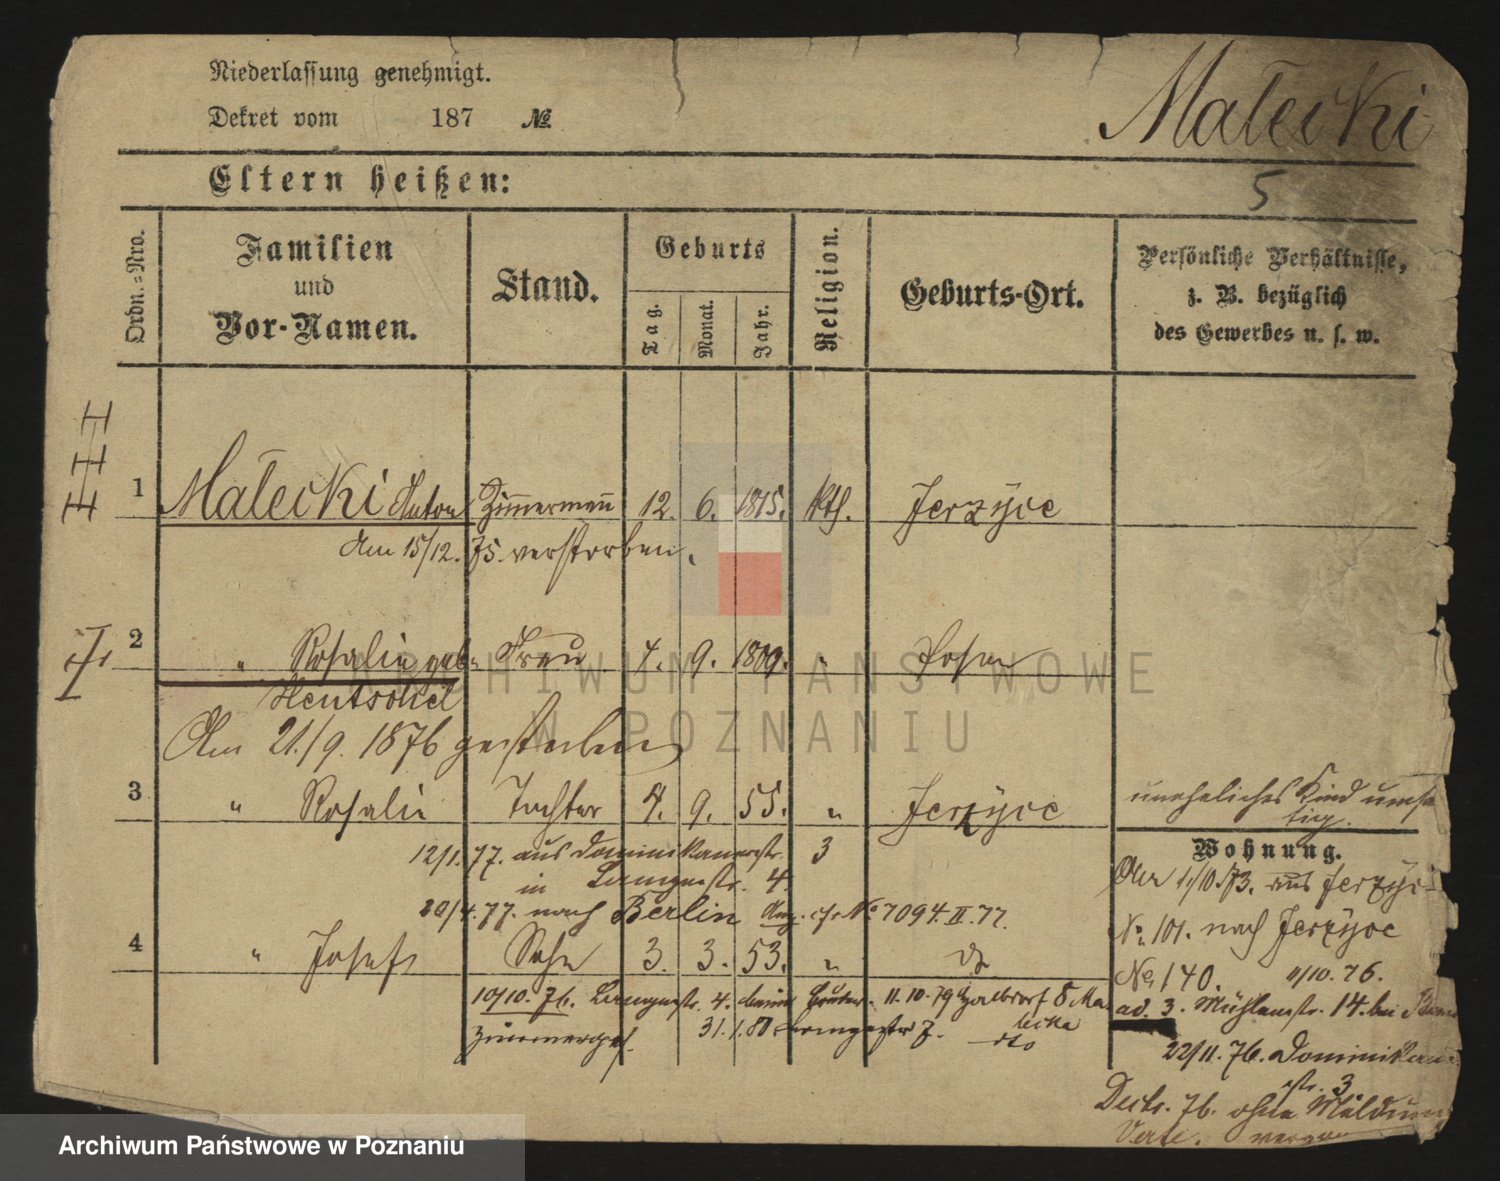 Niederlassung genehmigt.
Dekret vom 187 №
Małecki
5
Eltern heißen:
Ordn.-Nro.
Familien
und
Vor-Namen.
Stand.
Geburts
Tag.
Monat.
Jahr.
Religion.
Geburts-Ort.
Persönliche Verhältnisse,
z. B. bezüglich
des Gewerbes u. s. w.
1 Małecki Anton Zimmermañ 12. 6. 1815. kth. Jerzyce
Am 15/12. 75. verstorben.
2 " Rosalie geb. Frau 4. 9. 1809. " Posen
Hentschel
Am 21./9. 1876 gestorben
3 " Rosalie Tochter 4. 9. 55. " Jerzyce
uneheliches Kind
12/1. 77. aus Dominikanerstr. 3
in 4.
20/4. 77. nach Berlin No 7094. II. 77.
4 " Josef Sohn 3. 3. 53. " do
10/10. 76. 4. 11.10.79 8
Zimmerges. 31.1.80 7.
dto
Wohnung.
1/10. 73. aus Jerzyce
No 101. nach Jerzyce
No 140. 11/10. 76.
ad. 3. Mühlenstr. 14. bei
22/11. 76. Dominikaner
str. 3.
76. ohne Meldung
ARCHIWUM PAŃSTWOWE
W POZNANIU
Archiwum Państwowe w Poznaniu